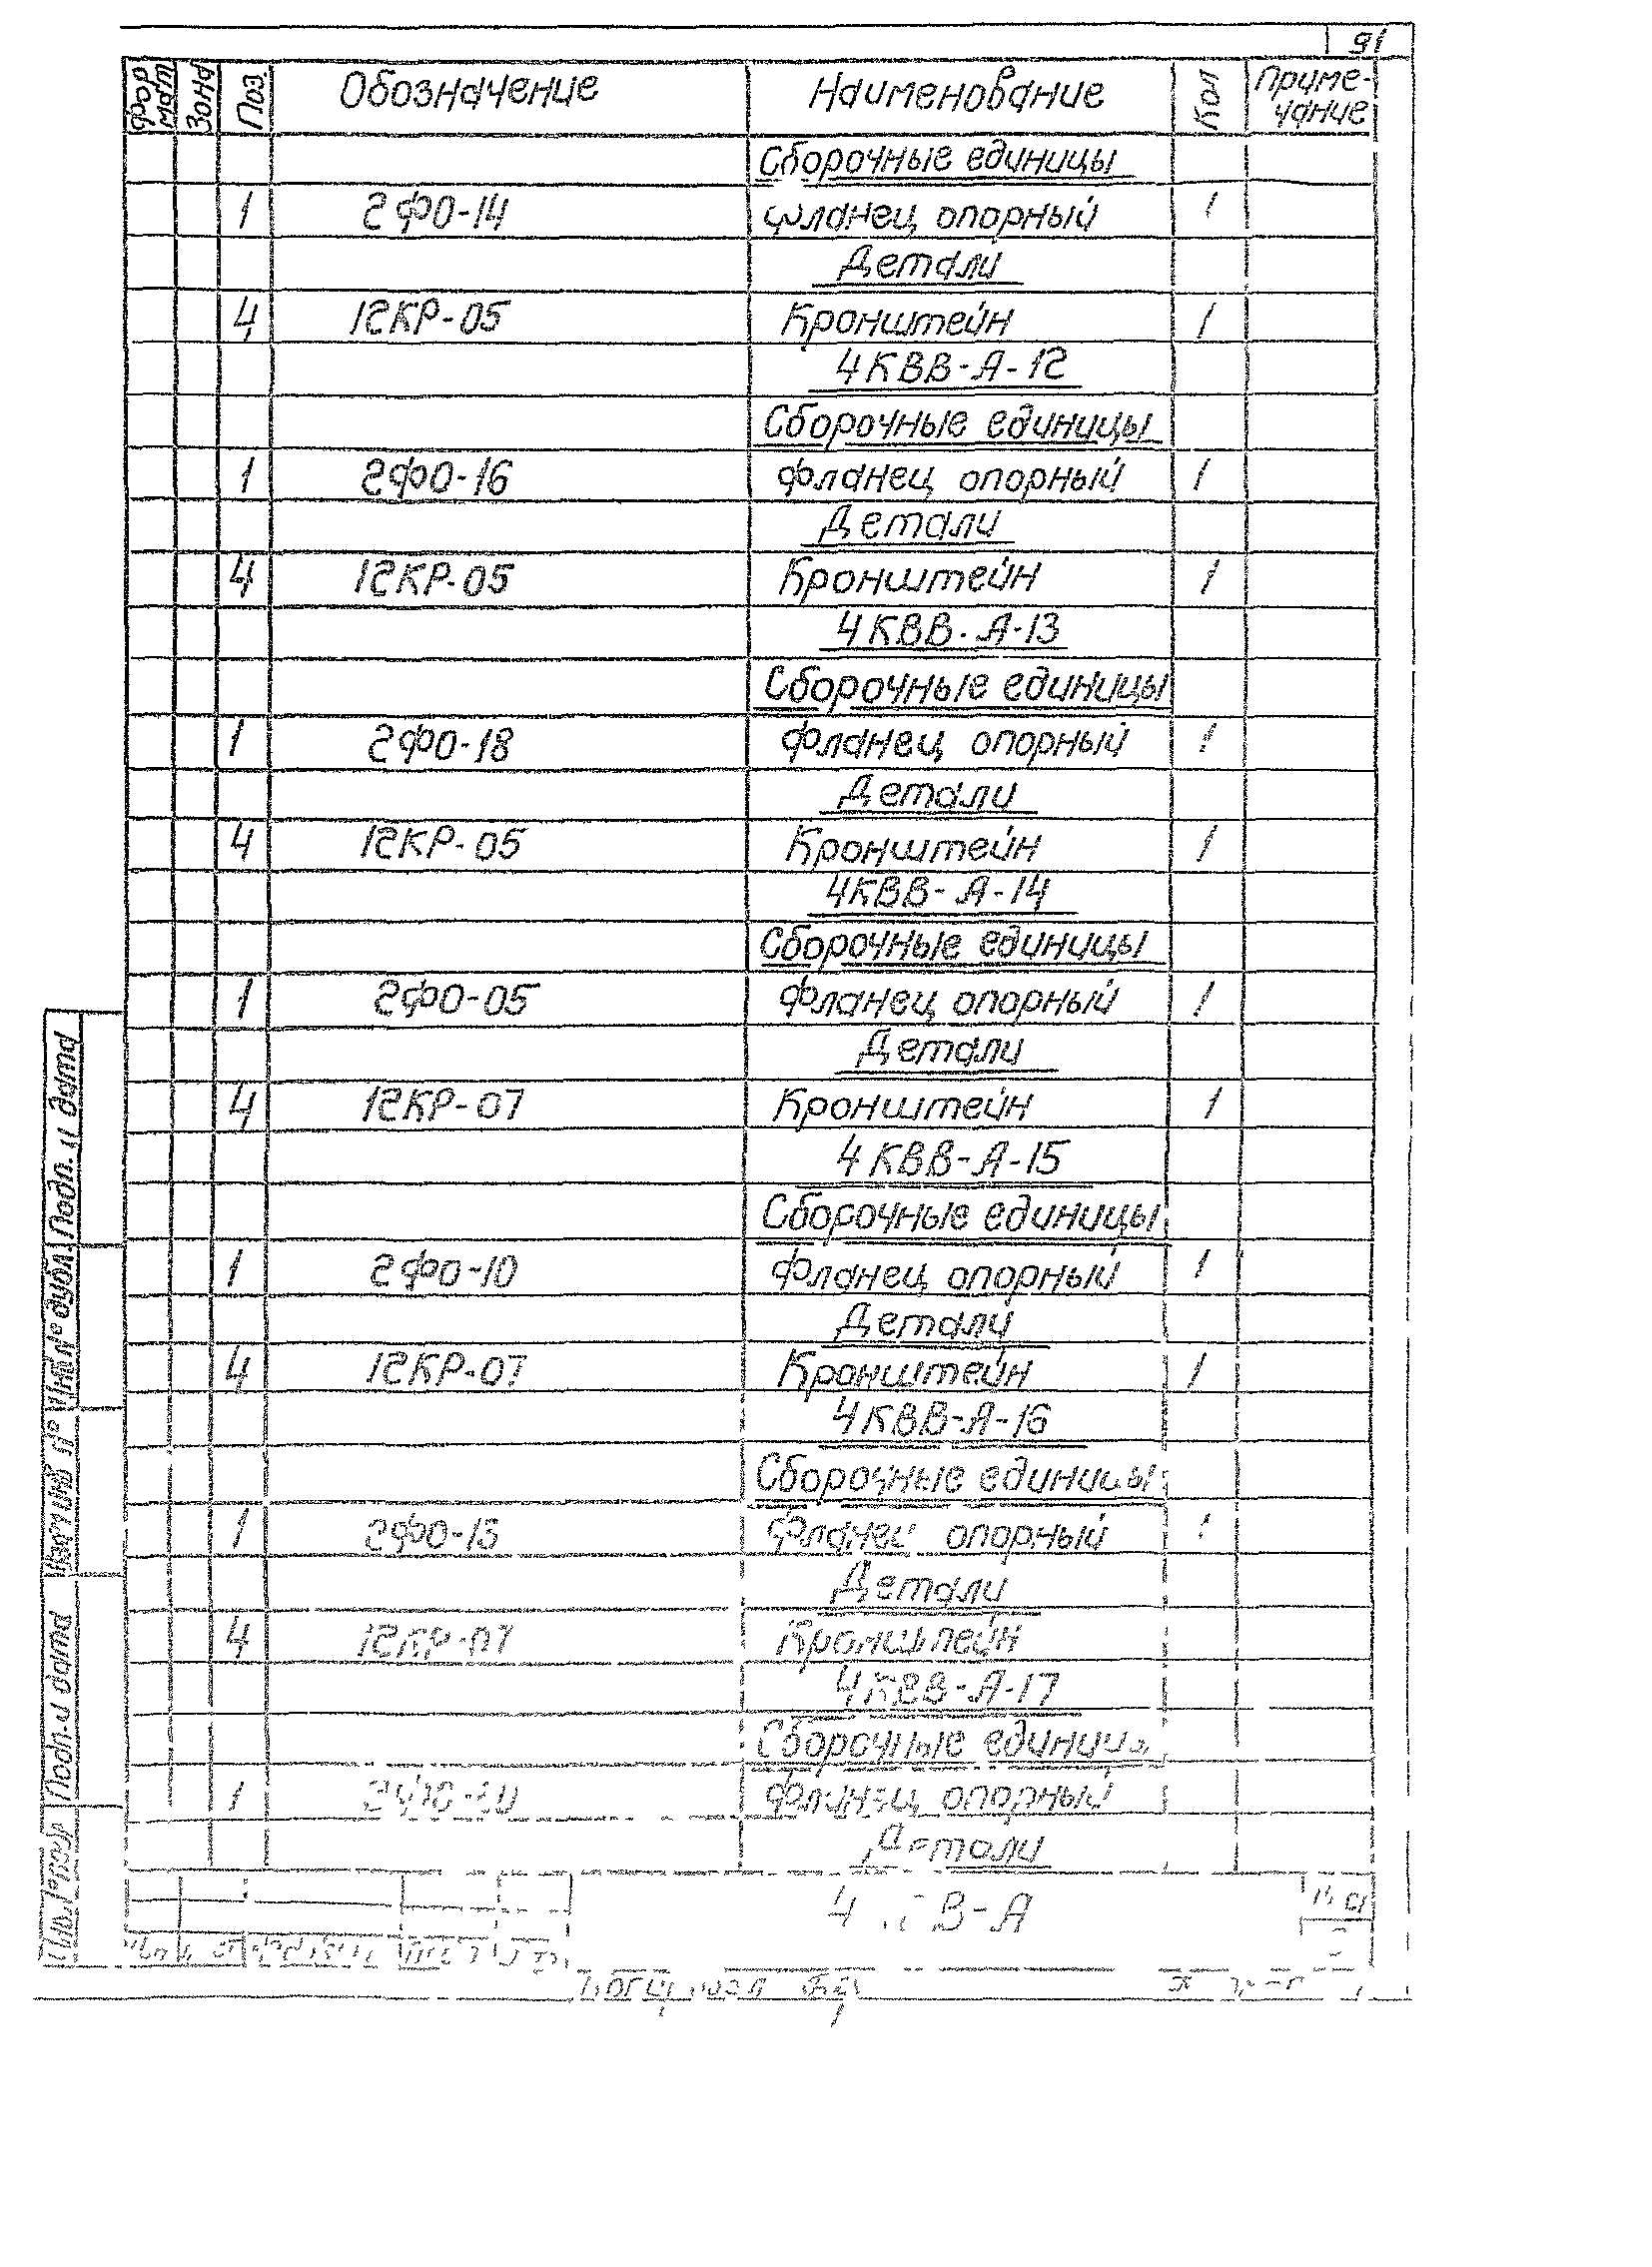 91
Фор мат Зона Поз. Обозначение Наименование Кол Приме-
чание
Сборочные единицы
1 2ФО-14 Фланец опорный 1
Детали
4 12КР-05 Кронштейн 1
4КВВ-А-12
Сборочные единицы
1 2ФО-16 Фланец опорный 1
Детали
4 12КР-05 Кронштейн 1
4КВВ-А-13
Сборочные единицы
1 2ФО-18 Фланец опорный 1
Детали
4 12КР-05 Кронштейн 1
4КВВ-А-14
Сборочные единицы
1 2ФО-05 Фланец опорный 1
Детали
4 12КР-07 Кронштейн 1
4КВВ-А-15
Сборочные единицы
1 2ФО-10 Фланец опорный 1
Детали
4 12КР-07 Кронштейн 1
4КВВ-А-16
Сборочные единицы
1 Фланец опорный 1
Детали
4 12КР-07 Кронштейн
4КВВ-А-17
Сборочные единицы
1 Фланец опорный
Детали
Подп. и дата
Инв. № дубл.
Взам. инв. №
Подп. и дата